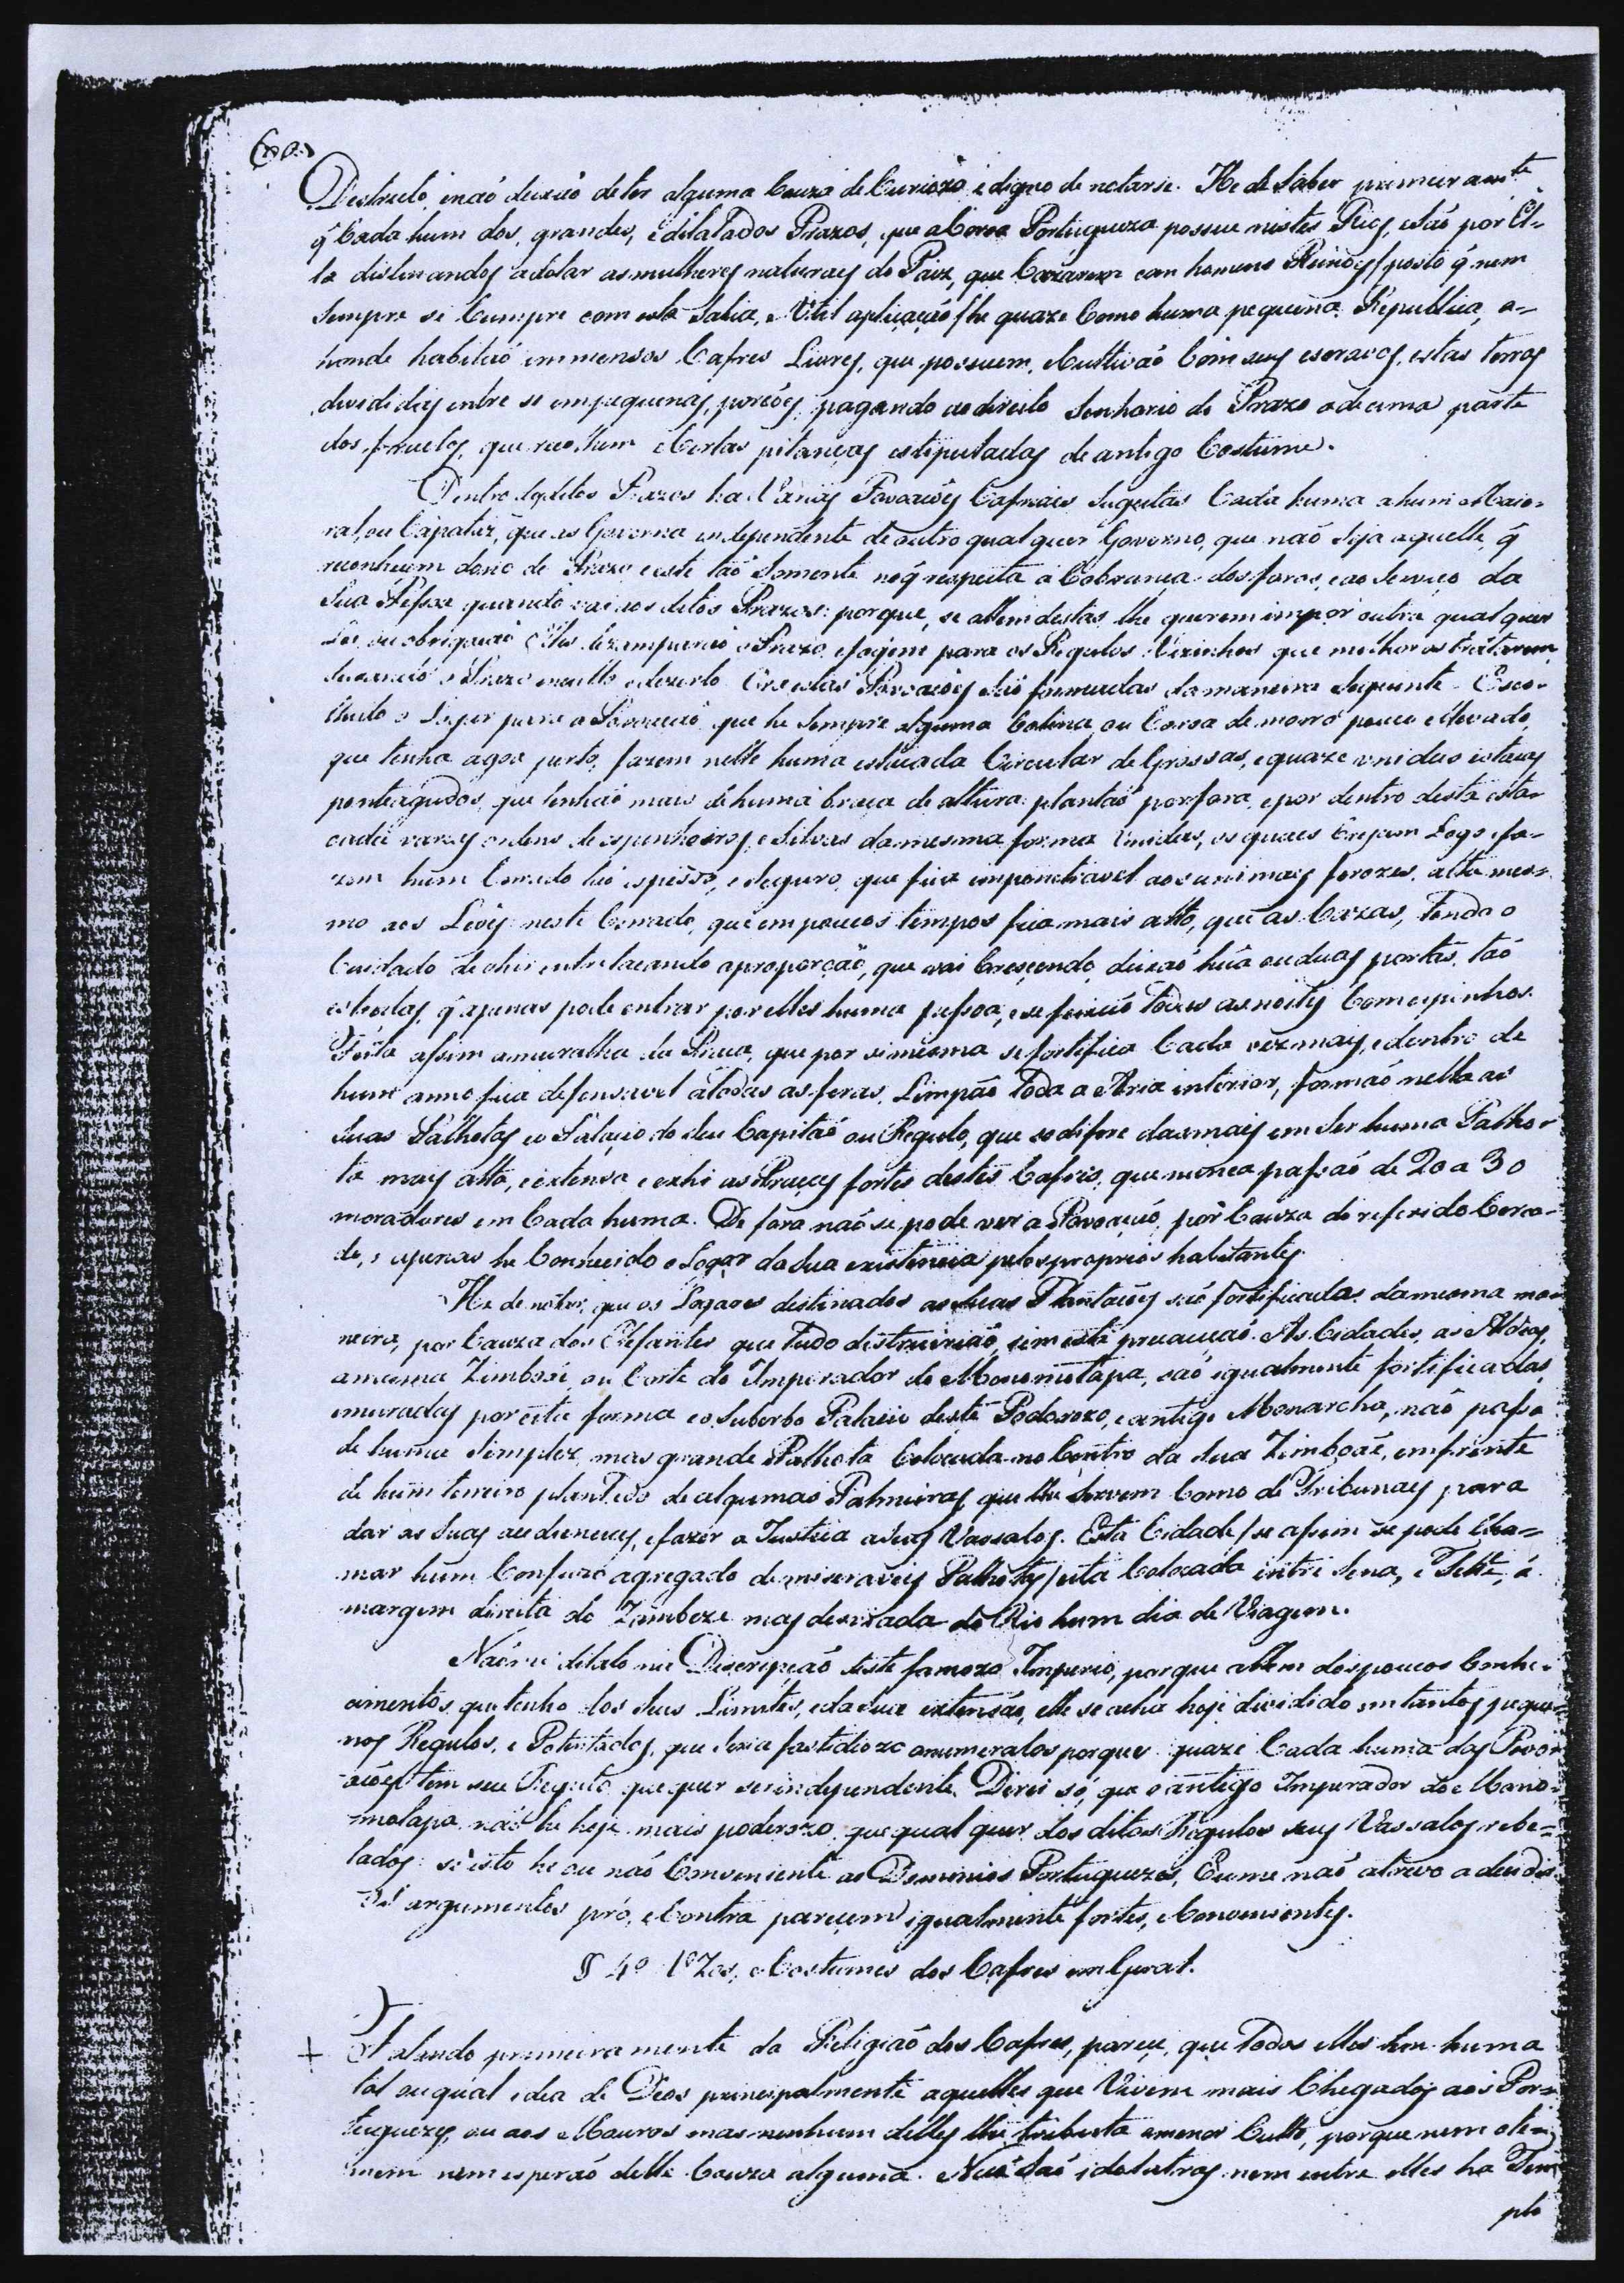 Destricto, e naó deixaó de ter alguma Couza de Curiozo, e digno de notarse. He de Saber primeiram.te
q̃ Cada hum dos grandes, e dilatados Prazos, que a Coroa Portugueza possue nestes Rios, estaó por El-
la distinandos a dotar as mulheres naturaes do Paiz, que Cazarem com homens Reinoes (posto q̃ nem
Sempre se Cumpre com esta Sabia, e Util aplicaçaó) he quaze Como huma pequena Republica, a-
honde habitaó immensos Cafres Livres, que possuem, e Cultivaó Com seus escravos, estas terras
divididas entre si em pequenas porcóes, pagando ao direito Senhorio do Prazo a decima parte
dos fructos, que recolhem e Certas pitanças estipuladas de antigo Costume.
Dentro dos ditos Prazos ha Varias Povoaçóes Cafriaes Sugeitas Cada huma a hum Maio-
ral, ou Capataz, que as Governa independente de outro qualquer Governo, que naó Seja aquelle, q̃
reconhecem dono do Prazo, e este taó Somente no q̃ respeita a Cobrança dos foros, e ao Serviço da
Sua Pessoa quando vai aos ditos Prazos: porque, se allem destas lhe querem impor outra qualquer
Lei ou obrigaçaó Elles dezamparaó o Prazo, e fogem para os Regulos Vizinhos que melhor os tratarem,
deixando o Prazo inculto e dezerto. Ora estas Povoaçóes saó formadas da maneira Seguinte. Esco-
lhido o Lugar para a Povoaçaó que he Sempre alguma Colina, ou Coroa de morro pouco ellevado,
que tenha agoa perto, fazem nelle huma estacada Circular de Grossas, e quaze unidas estacas
ponteagudos, que tenhaó mais de huma braça de altura: plantaó por fora, e por dentro desta esta-
cada varias ordens de espinheiros, e Silvas da mesma forma Unidas, os quaes Crescem Logo e fa-
zem hum Cerrado taó espesso, e Seguro, que fica impenetravel aos animaes ferozes, atthe mes-
mo aos Leóes: neste Cerrado, que em poucos tempos fica mais alto, que as Cazas, tendo o
Cuidado de o hir entrelacando a proporçaó, que vai Crescendo, deixaó hũa ou duas portas, taó
estreitas, q̃ apenas pode entrar por ellas huma pessoa, e se fechaó todas as noites Com espinhos.
Feita assim a muralha da Praça, que por si mesma se fortifica Cada vez mais, e dentro de
hum anno fica defensavel a todas as feras, Limpaó toda a Aria interior, formaó nella as
Suas Palhotas, e o Palacio do Seu Capitaó ou Regulo, que so difere das mais em Ser huma Palho-
ta mais alta, e extensa: e exhi as Praças fortes destes Cafres, que nunca passaó de 20 a 30
moradores em Cada huma. De fora naó se pode ver a Povoaçaó, por Cauza do referido Cerca-
do, e apenas he Conhecido o Logar da Sua existencia pelos proprios habitantes.
He de notar, que os Logares destinados as Suas Plantaçóes saó fortificados da mesma ma-
neira, por Cauza dos Elefantes, que tudo destruiriaó, sem esta precauçaó. As Cidades, as Aldeas,
a mesma Zimboae, ou Corte do Imperador do Monomotapa, saó igualmente fortificadas,
e muradas por esta forma, e o Suberbo Palacio deste Poderozo, e antigo Monarcha, naó passa
de huma Simples, mas grande Palhota Colocada no Centro da Sua Zimboáe, em frente
de hum terreiro plantado de algumas Palmeiras que lhe Servem Como de Tribunaes para
dar as Suas audiencias, e fazer a Justica a Seus Vassalos. Esta Cidade (se assim se pode Cha-
mar hum Confuzo agregado de miseraveis Palhotas) esta Colocada entre Sena, e Tette, á
margem direita do Zambeze mas desviada do Rio hum dia de Viagem.
Naó me dilato na Descripçaó deste famozo Imperio, porque allem dos poucos Conhe-
cimentos, que tenho dos Seus Limites, e da Sua extensaó, elle se acha hoje dividido em tantos peque-
nos Regulos, e Potentados, que Seria fastidiozo anumeralos porque quaze Cada huma das Povo-
açóes tem seu Regulo que quer ser independente. Direi só, que o antigo Imperador do Mono-
motapa naó he hoje mais poderozo que qual quer dos ditos Regulos seus Vassalos rebe-
lados: se isto he ou naó Conveniente aos Dominios Portuguezes, Eu me naó atrevo a decidir
os argumentos pró, e Contra parecem igualmente fortes, e Convenientes.
§ 4º Uzos, e Costumes dos Cafres em Geral.
+ Falando primeiramente da Religiaó dos Cafres, parece, que todos elles tem huma
tal ou qual idea de Deos principalmente aquelles que Vivem mais Chegados aos Por-
tuguezes, ou aos Mouros mas nenhum delles lhe tributa o menor Culto, porque nem o te-
mem nem esperaó delle Couza alguma. Naó Saó idolatras, nem entre elles ha Tem
plo